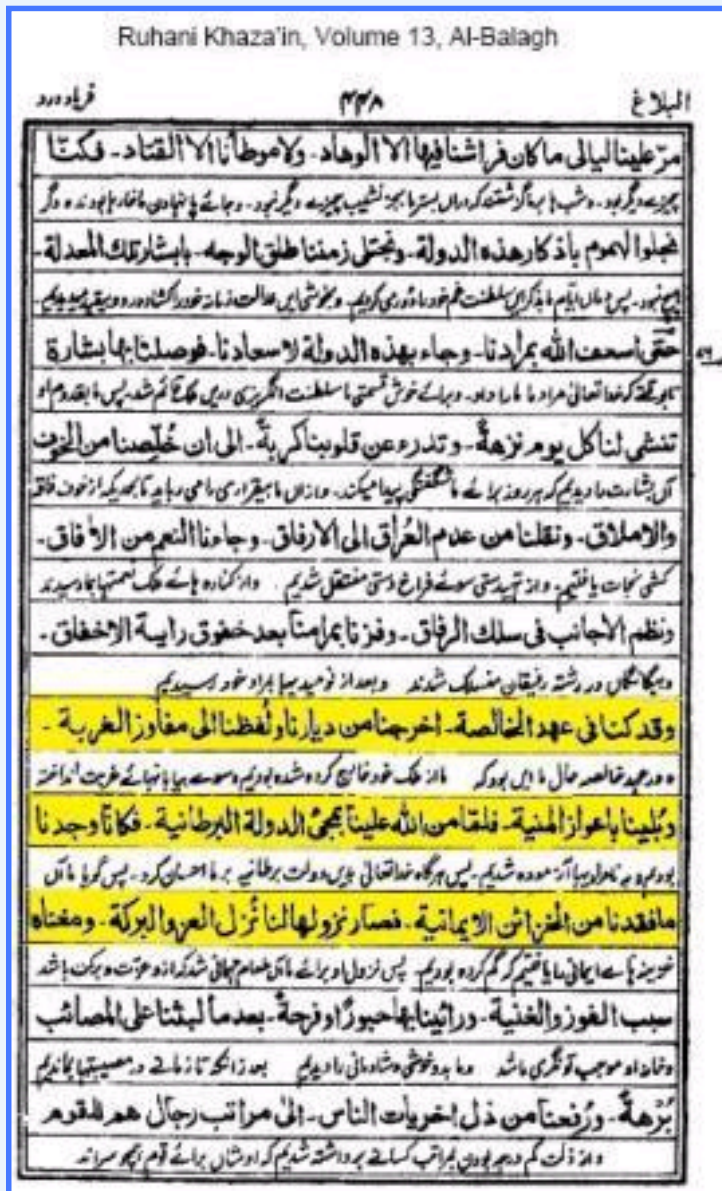 Ruhani Khaza'in, Volume 13, Al-Balagh
البلاغ ۴۴۸ فریاد درد
مرّ علینا لیالی ما کان فراشنا فیها الا الوهاد۔ ولا موطأنا الا القتاد۔ فکنّا
چیزے دیگر نبود۔ و شب ہا بر ما گذشت کہ دراں بستر ما بجز نشیب چیزے دیگر نبود۔ و جائے پا نہادن ما خار ہا بودند و دگر
نجلوا الهموم باذکار هذه الدولة۔ ونجتلی زمننا طلق الوجه۔ بابشار تلك المعدلة۔
ہیچ نبود۔ پس دراں ایام ما بذکر ایں سلطنت غم خود را دور می کردیم۔ و بخوشی ایں عدالت زمانہ خود را کشادہ رو
حتّی اسعف الله بمرادنا۔ وجاء بهذه الدولة لاسعادنا۔ فوصلنا بها بشارة
تا بوقتے کہ خدا تعالیٰ مراد ما مارا داد۔ و برائے خوش قسمتی ما سلطنت انگریزی دریں ملک قائم شد۔ پس ما بقدوم او
تنشی لنا کل یوم نزهةً۔ وتدرء عن قلوبنا کربةً۔ الی ان خُلّصنا من الخوف
آں بشارت را دیدیم کہ ہر روز برائے ما شگفتگی پیدا میکند۔ و ازاں ما بیقراری را می رباید تا بحدیکہ از خوف فاقہ
والاملاق۔ ونقلنا من عدم العُراق الی الارفاق۔ وجاءنا النعم من الآفاق۔
کشی نجات یافتیم۔ و از تہیدستی سوئے فراخ دستی منتقل شدیم۔ و از کنارہ ہائے ملک نعمتہا بما رسیدند
ونظم الاجانب فی سلك الرفاق۔ وفزنا بمرامنا بعد خفوق رایة الاخفاق۔
و بیگانگاں در رشتہ رفیقان منسلک شدند و بعد از نومیدیہا بمراد خود رسیدیم
وقد کنا فی عهد الخالصة۔ اخرجنا من دیارنا ولُفظنا الی مفاوز الغربة۔
و در عہد خالصہ حال ما ایں بود کہ ما از ملک خود خارج کردہ شدہ بودیم و سوئے بیابانہائے غربت انداختہ
وبُلینا باعواز المنیة۔ فلما من الله علینا بمجئ الدولة البرطانیة۔ فکانّا وجدنا
بودیم و بہ نامرادیہا آزمودہ شدیم۔ پس ہرگاہ خدا تعالیٰ بدیں دولت برطانیہ بر ما احسان کرد۔ پس گویا ما آں
مافقدنا من الخزائن الایمانیة۔ فصار نزولها لنا نُزل العز والبرکة۔ ومغناه
خزینہ ہائے ایمانی را یافتیم کہ گم کردہ بودیم۔ پس نزول او برائے ما آں طعام مہمانی شد کہ از و عزت و برکت باشد
سبب الفوز والغنیة۔ ورائینا بها حبورًا وفرحةً۔ بعد ما لبثنا علی المصائب
و خانہ او موجب تونگری ما شد و ما بدو خوشی و شادمانی را دیدیم بعد زانکہ تا زمانے در مصیبتہا بماندیم
بُرهةً۔ ورُفعنا من ذل اخریات الناس۔ الیٰ مراتب رجال هم للقوم
و از ذلت کم درجہ بودن بمراتب کسانے برداشتہ شدیم کہ اوشاں برائے قوم ہمچو سر اند